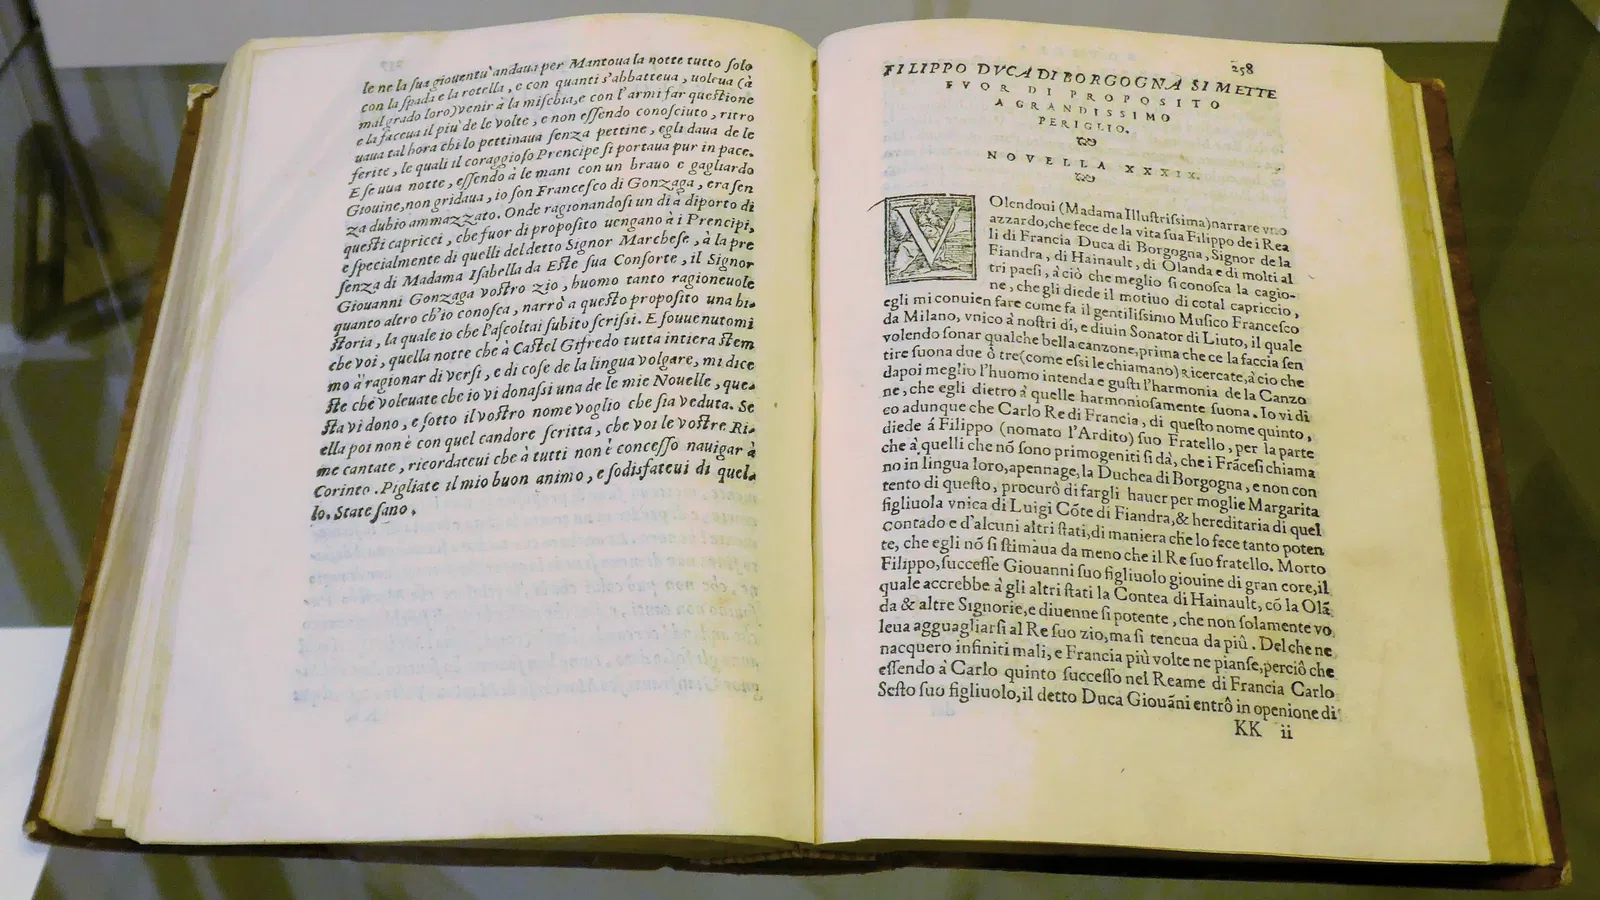 le ne la sua giouentu' andaua per Mantoua la notte tutto solo
con la spada e la rotella, e con quanti s'abbatteua, uoleua (à
mal grado loro) venir à la mischia, e con l'armi far questione
e la faceua il piu' de le volte, e non essendo conosciuto, ritro
uaua tal hora chi lo pettinaua senza pettine, egli daua de le
ferite, le quali il coraggioso Prencipe si portaua pur in pace.
E se vna notte, essendo à le mani con un brauo e gagliardo
Giouine, non gridaua, io son Francesco di Gonzaga, era sen
za dubio ammazzato. Onde ragionandosi un di à diporto di
questi capricci, che fuor di proposito uengano à i Prencipi,
e specialmente di quelli del detto Signor Marchese, à la pre
senza di Madama Isabella da Este sua Consorte, il Signor
Giouanni Gonzaga vostro zio, huomo tanto ragioneuole
quanto altro ch'io conosca, narrò a questo proposito una hi-
storia, la quale io che l'ascoltai subito scrissi. E souuenutomi
che voi, quella notte che à Castel Gifredo tutta intiera stem
mo à ragionar di versi, e di cose de la lingua volgare, mi dice
ste che voleuate che io vi donassi una de le mie Nouelle, que-
sta vi dono, e sotto il vostro nome voglio che sia veduta. Se
ella poi non è con quel candore scritta, che voi le vostre Ri-
me cantate, ricordateui che à tutti non è concesso nauigar à
Corinto. Pigliate il mio buon animo, e sodisfateui di quel-
lo. State sano.
258
FILIPPO DVCA DI BORGOGNA SI METTE
FVOR DI PROPOSITO
A GRANDISSIMO
PERIGLIO.
NOVELLA XXXIX.
VOlendoui (Madama Illustrissima) narrare vno
azzardo, che fece de la vita sua Filippo de i Rea
li di Francia Duca di Borgogna, Signor de la
Fiandra, di Hainault, di Olanda e di molti al
tri paesi, à ciò che meglio si conosca la cagio-
ne, che gli diede il motiuo di cotal capriccio,
egli mi conuien fare come fa il gentilissimo Musico Francesco
da Milano, vnico à nostri dí, e diuin Sonator di Liuto, il quale
volendo sonar qualche bella canzone, prima che ce la faccia sen
tire suona due ò tre (come essi le chiamano) Ricercate, à cio che
dapoi meglio l'huomo intenda e gusti l'harmonia de la Canzo
ne, che egli dietro à quelle harmoniosamente suona. Io vi di
co adunque che Carlo Re di Francia, di questo nome quinto,
diede á Filippo (nomato l'Ardito) suo Fratello, per la parte
che à quelli che nõ sono primogeniti si dà, che i Frãcesi chiama
no in lingua loro, apennage, la Duchea di Borgogna, e non con
tento di questo, procurò di fargli hauer per moglie Margarita
figliuola vnica di Luigi Cõte di Fiandra, & hereditaria di quel
contado e d'alcuni altri stati, di maniera che lo fece tanto poten
te, che egli nõ si stimàua da meno che il Re suo fratello. Morto
Filippo, successe Giouanni suo figliuolo giouine di gran core, il
quale accrebbe à gli altri stati la Contea di Hainault, cõ la Olã
da & altre Signorie, e diuenne si potente, che non solamente vo
leua agguagliarsi al Re suo zio, ma si teneua da piû. Del che ne
nacquero infiniti mali, e Francia più volte ne pianse, perciô che
essendo à Carlo quinto successo nel Reame di Francia Carlo
Sesto suo figliuolo, il detto Duca Giouãni entrô in openione di
KK ii